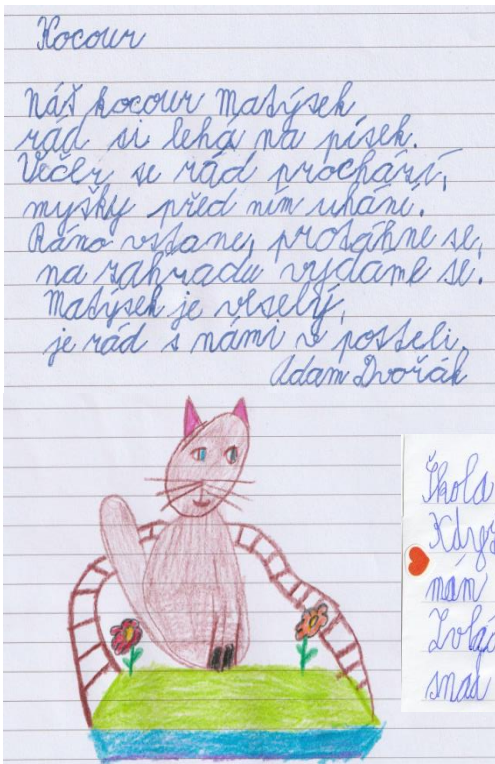 Kocour
Náš kocour Matýsek
rád si lehá na písek.
Večer se rád prochází,
myšky před ním uhání.
Ráno vstane, protáhne se,
na zahradu vydáme se.
Matýsek je veselý,
je rád s námi v posteli.
Adam Dvořák
Škola
Když
mám
snad